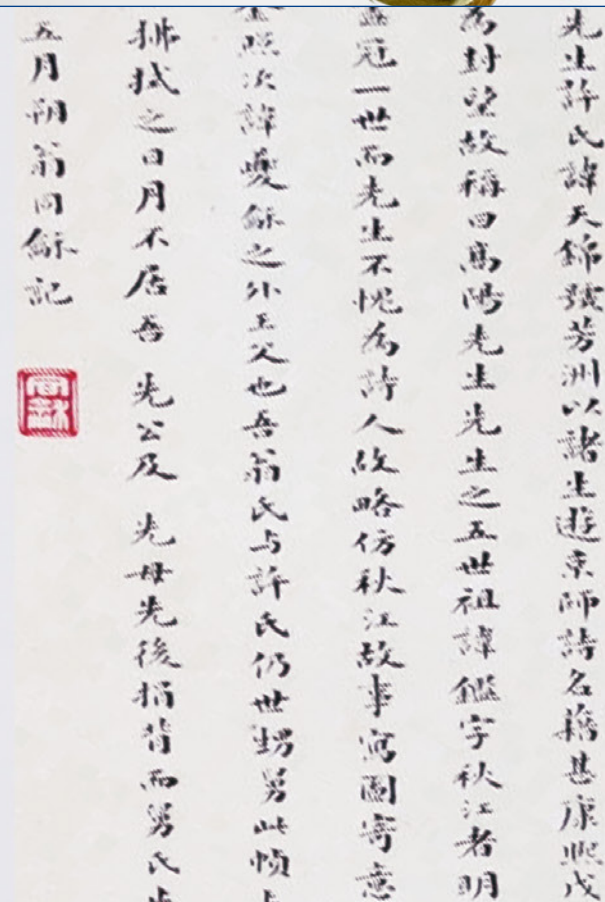 先生許氏諱天錦號芳洲以諸生遊京師詩名藉甚康熙戊
為封望故稱曰高陽先生先生之五世祖諱鑑字秋江者明
盖冠一世而先生不愧為詩人故略仿秋江故事寫圖寄意
照次諱夔龢之外王父也吾翁氏与許氏仍世甥舅此幀
拂拭之日月不居吾 先公及 先母先後捐背而舅氏
五月朔翁同龢記
同龢